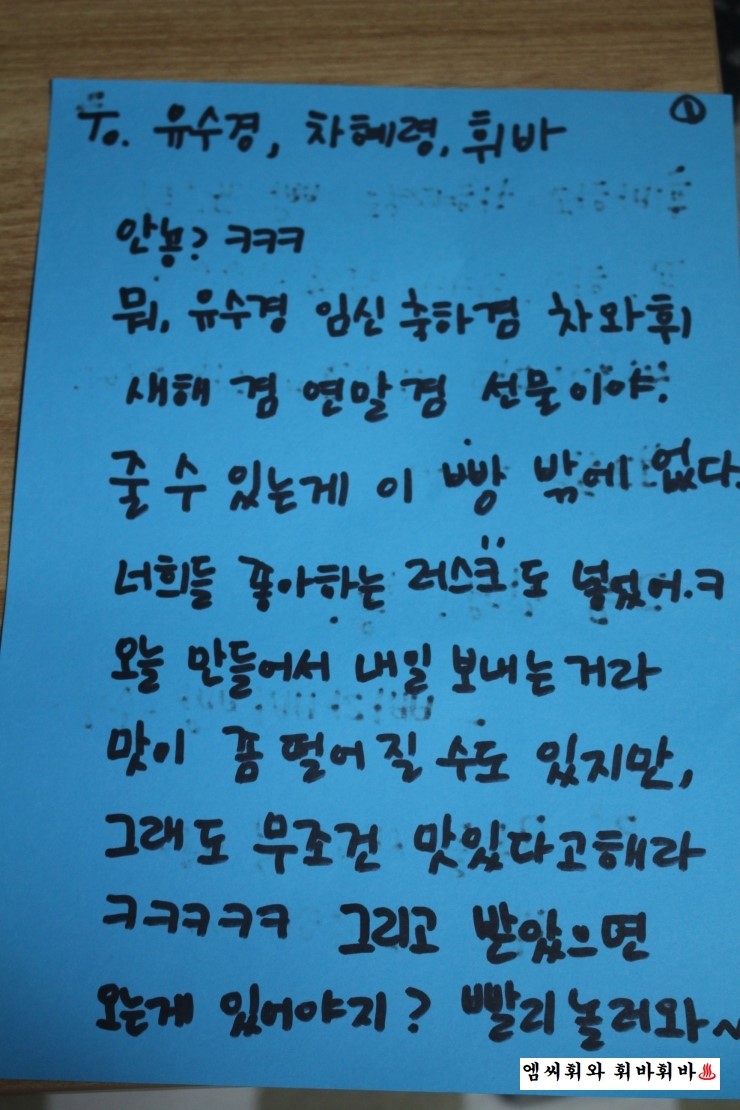 To. 유수경, 차혜령, 휘바 ①
안뇽? ㅋㅋㅋ
뭐, 유수경 임신 축하겸 차와휘
새해 겸 연말겸 선물이야.
줄 수 있는게 이 빵 밖에 없다.
너희들 좋아하는 러스크도 넣었어.ㅋ
오늘 만들어서 내일 보내는거라
맛이 좀 떨어질 수도 있지만,
그래도 무조건 맛있다고해라
ㅋㅋㅋㅋㅋ 그리고 받았으면
오는게 있어야지? 빨리 놀러와~
엠씨휘와 휘바휘바♨